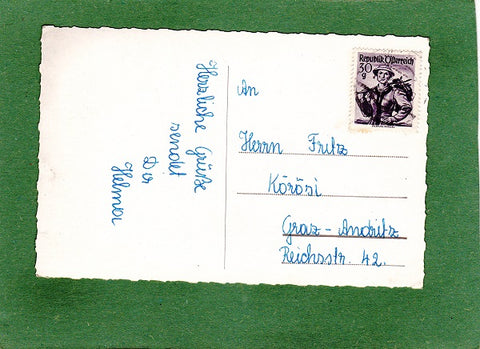 Herzliche Grüße
sendet
Dir
Helma
An
Herrn Fritz
Körösi
Graz-Andritz
Reichsstr. 42.
Republik Österreich
30
g